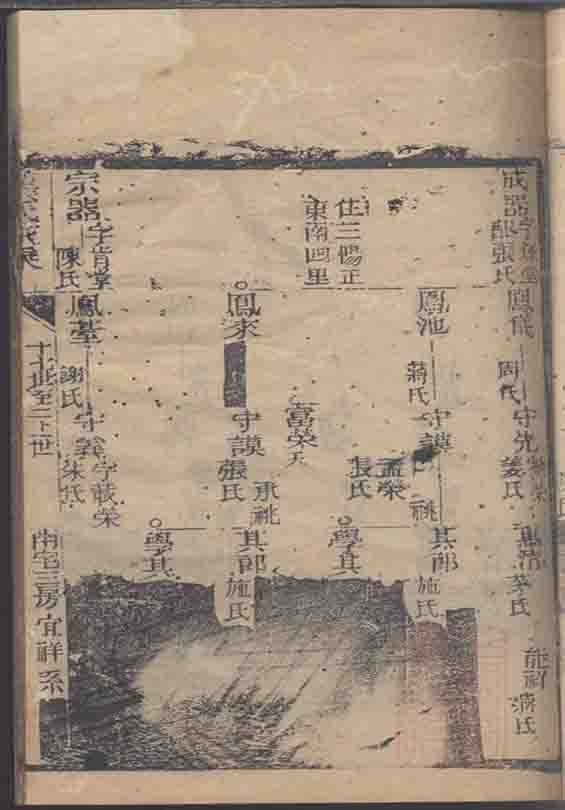 成器字
配張氏
鳳儀
周氏
守先
姜氏
氏
能
氏
住三陽正
東南四里
鳳池
蔣氏
守謨
祧
孟榮
張氏
其郎
施氏
學其
富榮
鳳來
守謨
張氏
承祧
其郎
施氏
學其
宗器字肯堂
陳氏
鳳臺
謝氏
守義字載榮
朱氏
十七世至二十世
南宅三房宜祥系